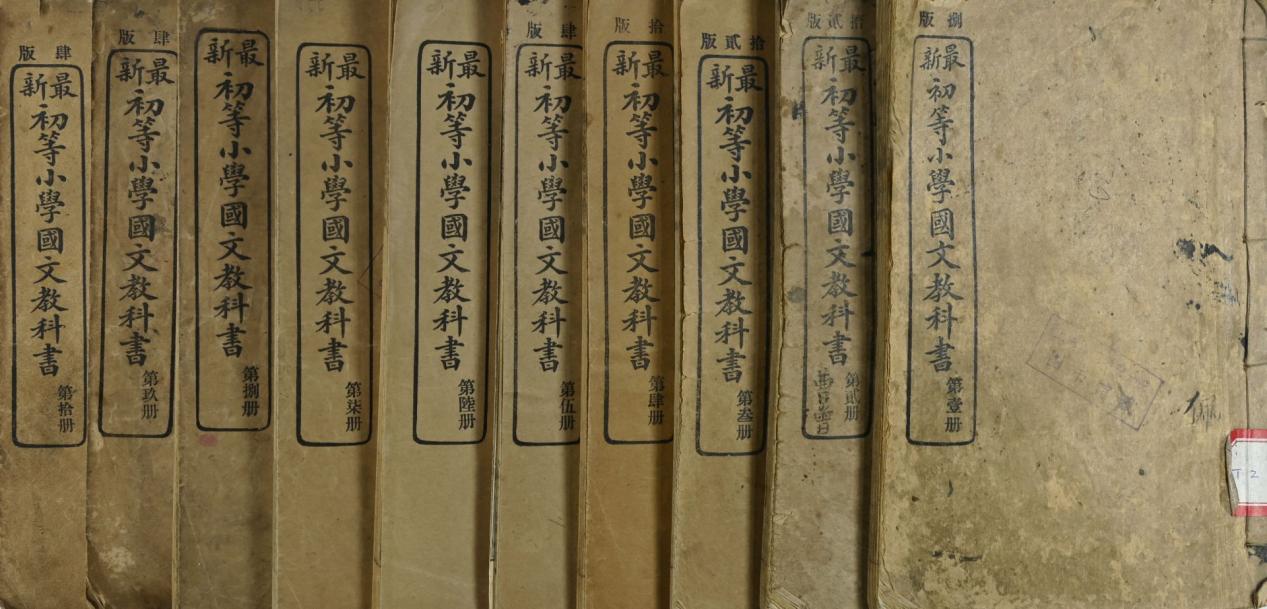 捌版
最新初等小學國文教科書
第壹册
拾貳版
最新初等小學國文教科書
第貳册
拾貳版
最新初等小學國文教科書
第叁册
拾版
最新初等小學國文教科書
第肆册
肆版
最新初等小學國文教科書
第伍册
最新初等小學國文教科書
第陸册
最新初等小學國文教科書
第柒册
最新初等小學國文教科書
第捌册
肆版
最新初等小學國文教科書
第玖册
肆版
最新初等小學國文教科書
第拾册